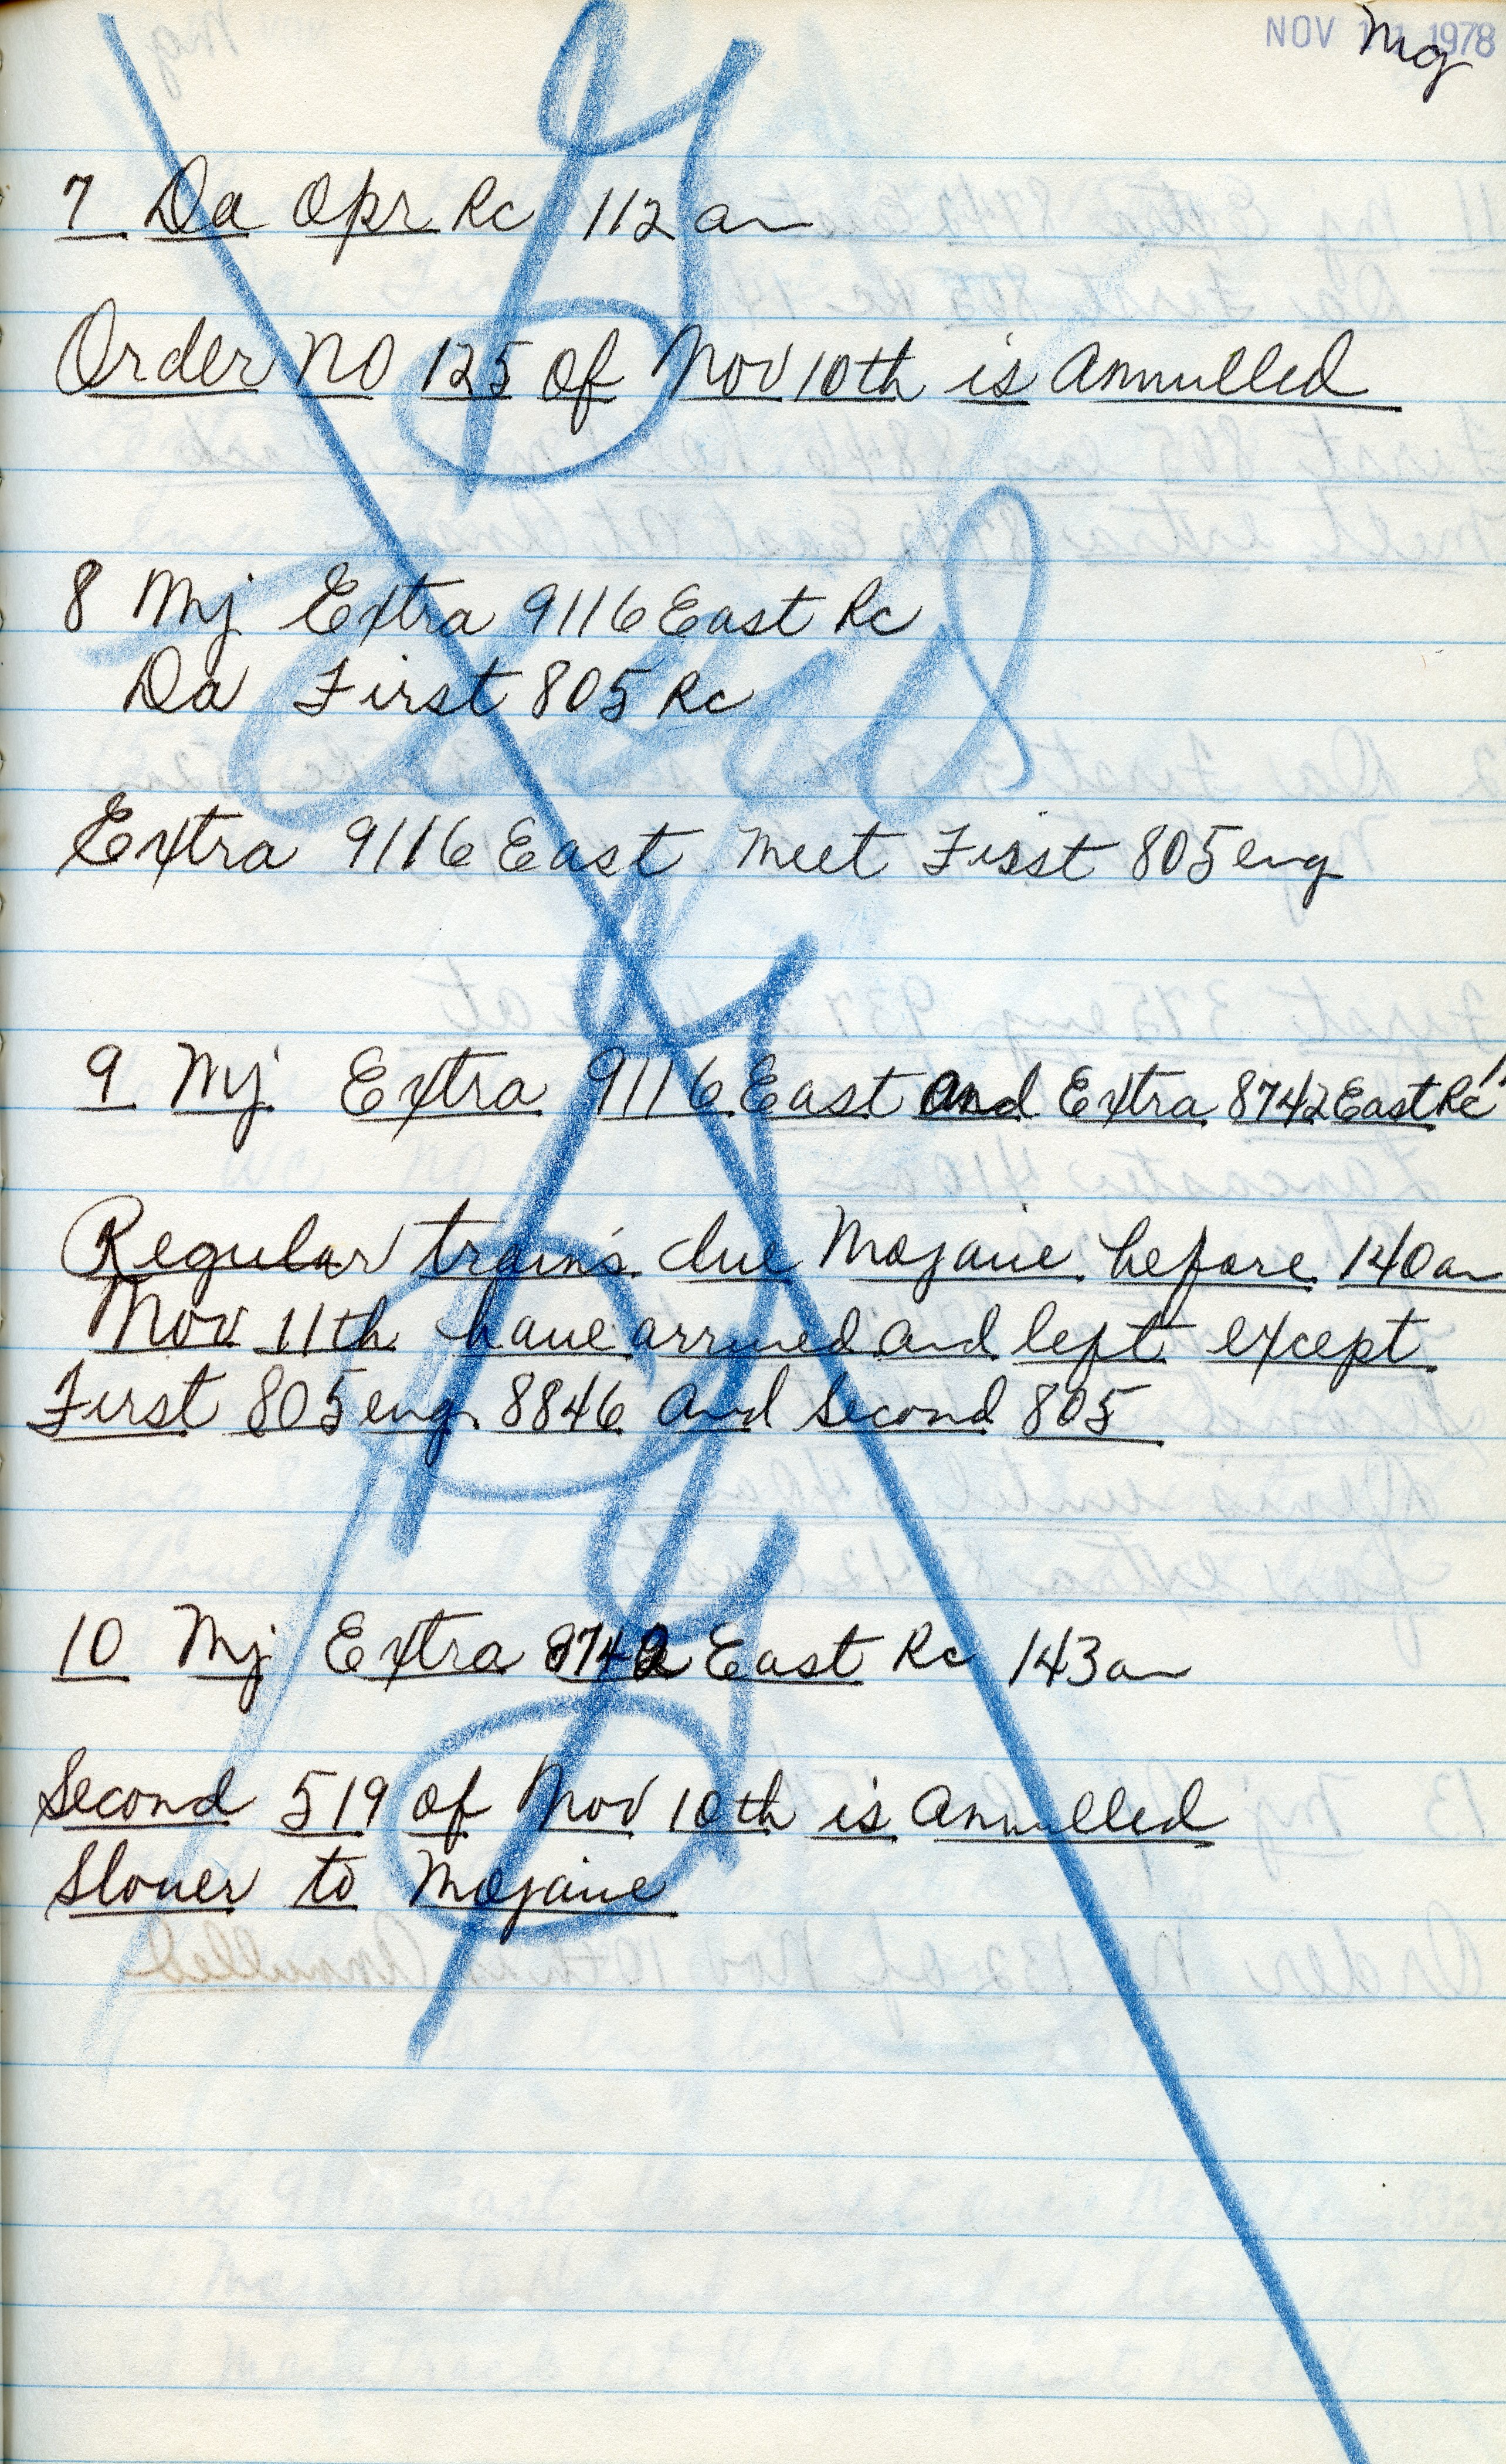 NOV 1978
mg
7 Da Opr Rc 112 am
Order no 125 of Nov 10th is annulled
8 Mj Extra 9116 East Rc
Da First 805 Rc
Extra 9116 East meet First 805 eng
9 Mj Extra 9116 East and Extra 8742 East Rc
Regular trains due Mojave before 140 am
Nov 11th have arrived and left except
First 805 eng 8846 and Second 805
10 Mj Extra 8742 East Rc 143 am
Second 519 of Nov 10th is annulled
Slover to Mojave